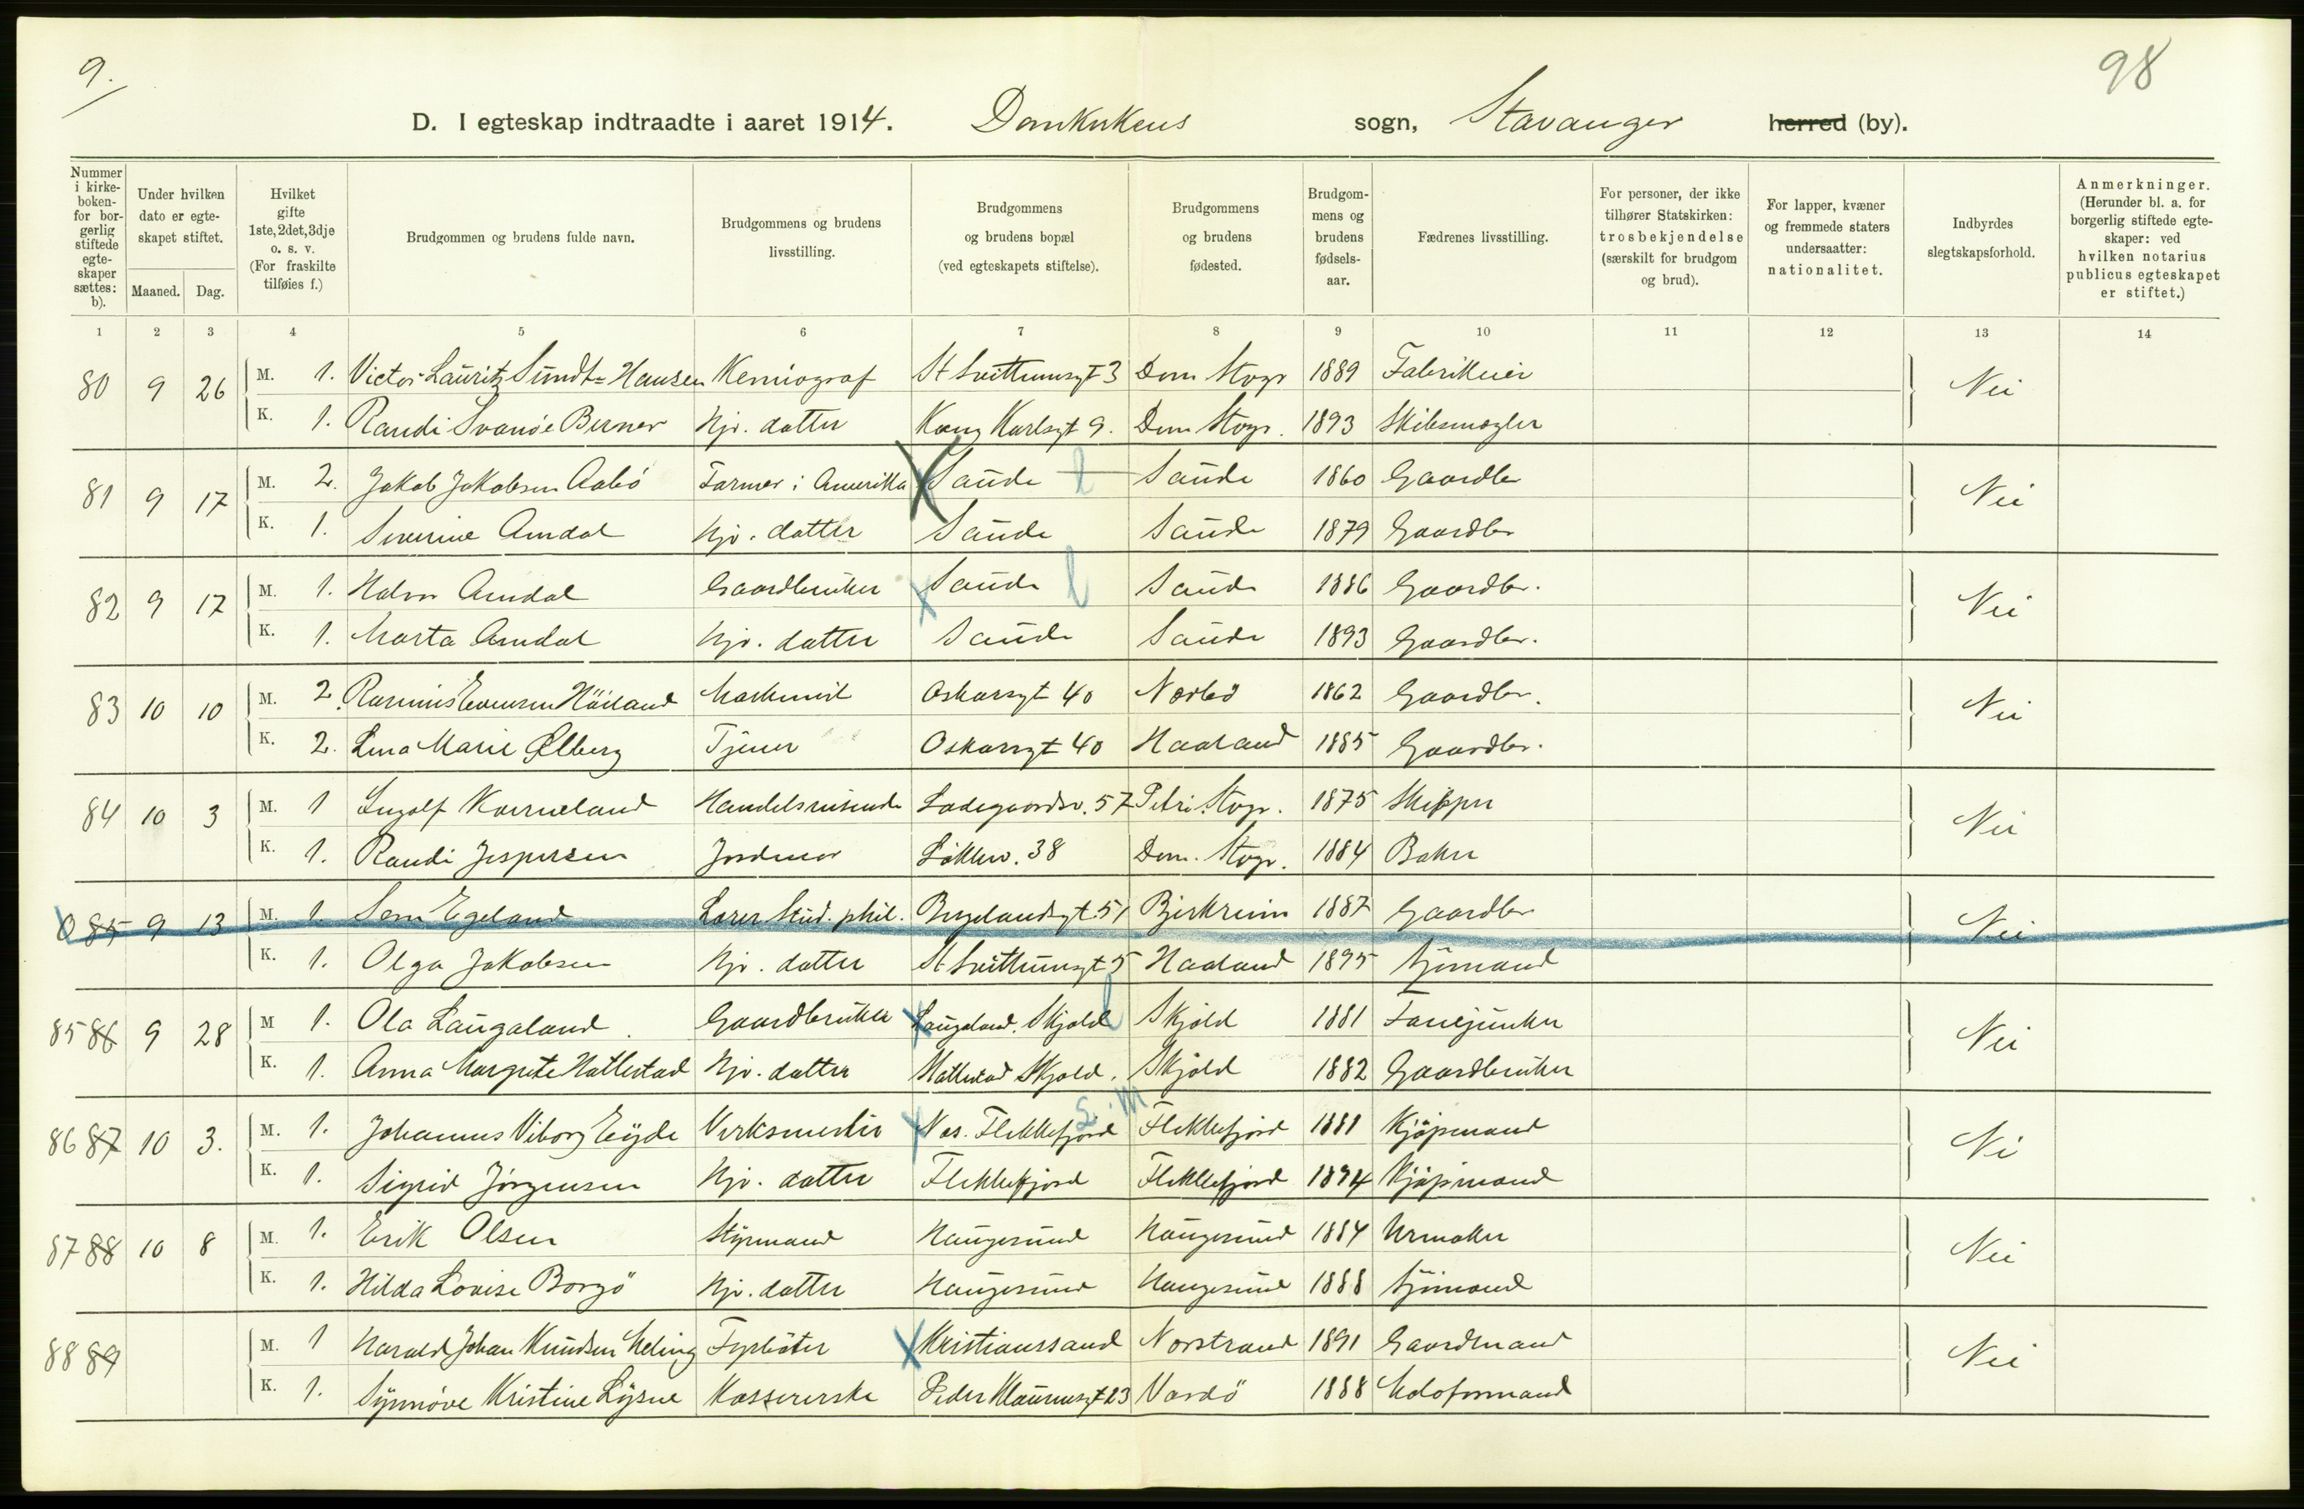 9.
98
D. I egteskap indtraadte i aaret 1914. Domkirkens sogn, Stavanger herred (by).
Nummer i kirkeboken- for borgerlig stiftede egteskaper sættes: b).
Under hvilken dato er egteskapet stiftet.
Maaned. Dag.
Hvilket gifte 1ste, 2det, 3dje o. s. v. (For fraskilte tilføies f.)
Brudgommen og brudens fulde navn.
Brudgommens og brudens livsstilling.
Brudgommens og brudens bopæl (ved egteskapets stiftelse).
Brudgommens og brudens fødested.
Brudgommens og brudens fødselsaar.
Fædrenes livsstilling.
For personer, der ikke tilhører Statskirken: trosbekjendelse (særskilt for brudgom og brud).
For lapper, kvæner og fremmede staters undersaatter: nationalitet.
Indbyrdes slegtskapsforhold.
Anmerkninger. (Herunder bl. a. for borgerlig stiftede egteskaper: ved hvilken notarius publicus egteskapet er stiftet.)
1 2 3 4 5 6 7 8 9 10 11 12 13 14
80 9 26 M. 1. Victor Lauritz Sundt=Hansen Kemiograf St Svithunsgt 3 Dom Stvgr 1889 Fabrikeier Nei
K. 1. Randi Svanøe Berner Hjv. datter Kong Karlsgt 9. Dom Stvgr. 1893 Skibsmægler
81 9 17 M. 2. Jakob Jakobsen Aabø Farmer i Amerika Saude Saude 1860 Gaardbr Nei
K. 1. Severine Amdal Hjv. datter Saude Saude 1879 Gaardbr
82 9 17 M. 1. Halvor Amdal Gaardbruker Saude Saude 1886 Gaardbr. Nei
K. 1. Marta Amdal Hjv. datter Saude Saude 1893 Gaardbr.
83 10 10 M. 2. Rasmus Evensen Höiland Oskarsgt 40 Nærbö 1862 Gaardbr. Nei
K. 2. Lina Marie Ølberg Tjener Oskarsgt 40 Haaland 1885 Gaardbr.
84 10 3 M. 1 Ingolf Kverneland Handelsreisende Ladegaardsv. 57 Petri Stvgr. 1875 Skipper Nei
K. 1. Randi Jespersen Jordmor Løkkev. 38 Dom. Stvgr. 1884 Baker
0 85 9 13 M. 1. Sem Egeland Lærer Stud. phil. Bergelandsgt. 51 Bjerkreim 1887 Gaardbr Nei
K. 1. Olga Jakobsen Hjv. datter St Svithunsgt 5 Haaland 1895 Sjömand
85 86 9 28 M 1. Ola Laugaland Gaardbruker Laugaland. Skjold Skjold 1881 Fanejunker Nei
K. 1. Anna Margrete Hatlestad Hjv. datter Hatlestad Skjold. Skjold 1882 Gaardbruker
86 87 10 3. M. 1. Johannes Viborg Eÿde Verksmester Nes. Flekkefjord Flekkefjord 1881 Kjøpmand Nei
K. 1. Sigrid Jörgensen Hjv. datter Flekkefjord Flekkefjord 1894 Kjøpmand
87 88 10 8 M. 1. Erik Olsen Styrmand Haugesund Haugesund 1884 Urmaker Nei
K. 1. Hilda Lovise Borgö Hjv. datter Haugesund Haugesund 1888 Sjömand
88 89 M. 1 Harald Johan Knudsen Meling Fyrböter Kristianssand Norstrand 1891 Gaardmand Nei
K. 1. Synnöve Kristine Lÿsne Kassererske Peder Klausensgt 23 Vardö 1888